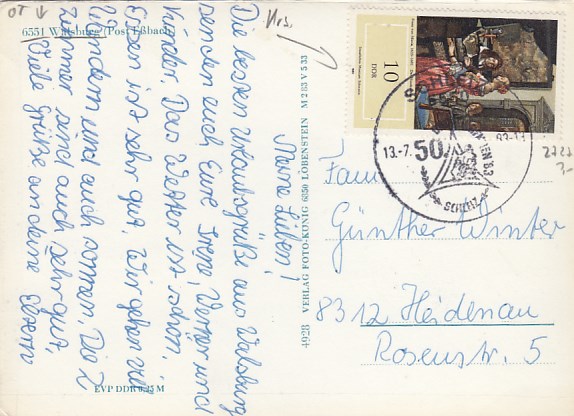 OT
Hrs.
6551 Walsburg (Post Eßbach)
Meine Lieben!
Die besten Urlaubsgrüße aus Walsburg
senden euch Eure Irene, Werner und
Kinder. Das Wetter ist schön.
Essen ist sehr gut. Wir gehen viel
wandern und auch sonnen. Die 2
Zimmer sind auch sehr gut.
Viele Grüße an deine Eltern
EVP DDR 0,25 M
4628 VERLAG FOTO-KÖNIG 6850 LOBENSTEIN M 2 83 V 5 33
10
DDR
13.-7.
50.
SCHLEIZ
Fam.
Günther Winter
8312 Heidenau
Rosenstr. 5